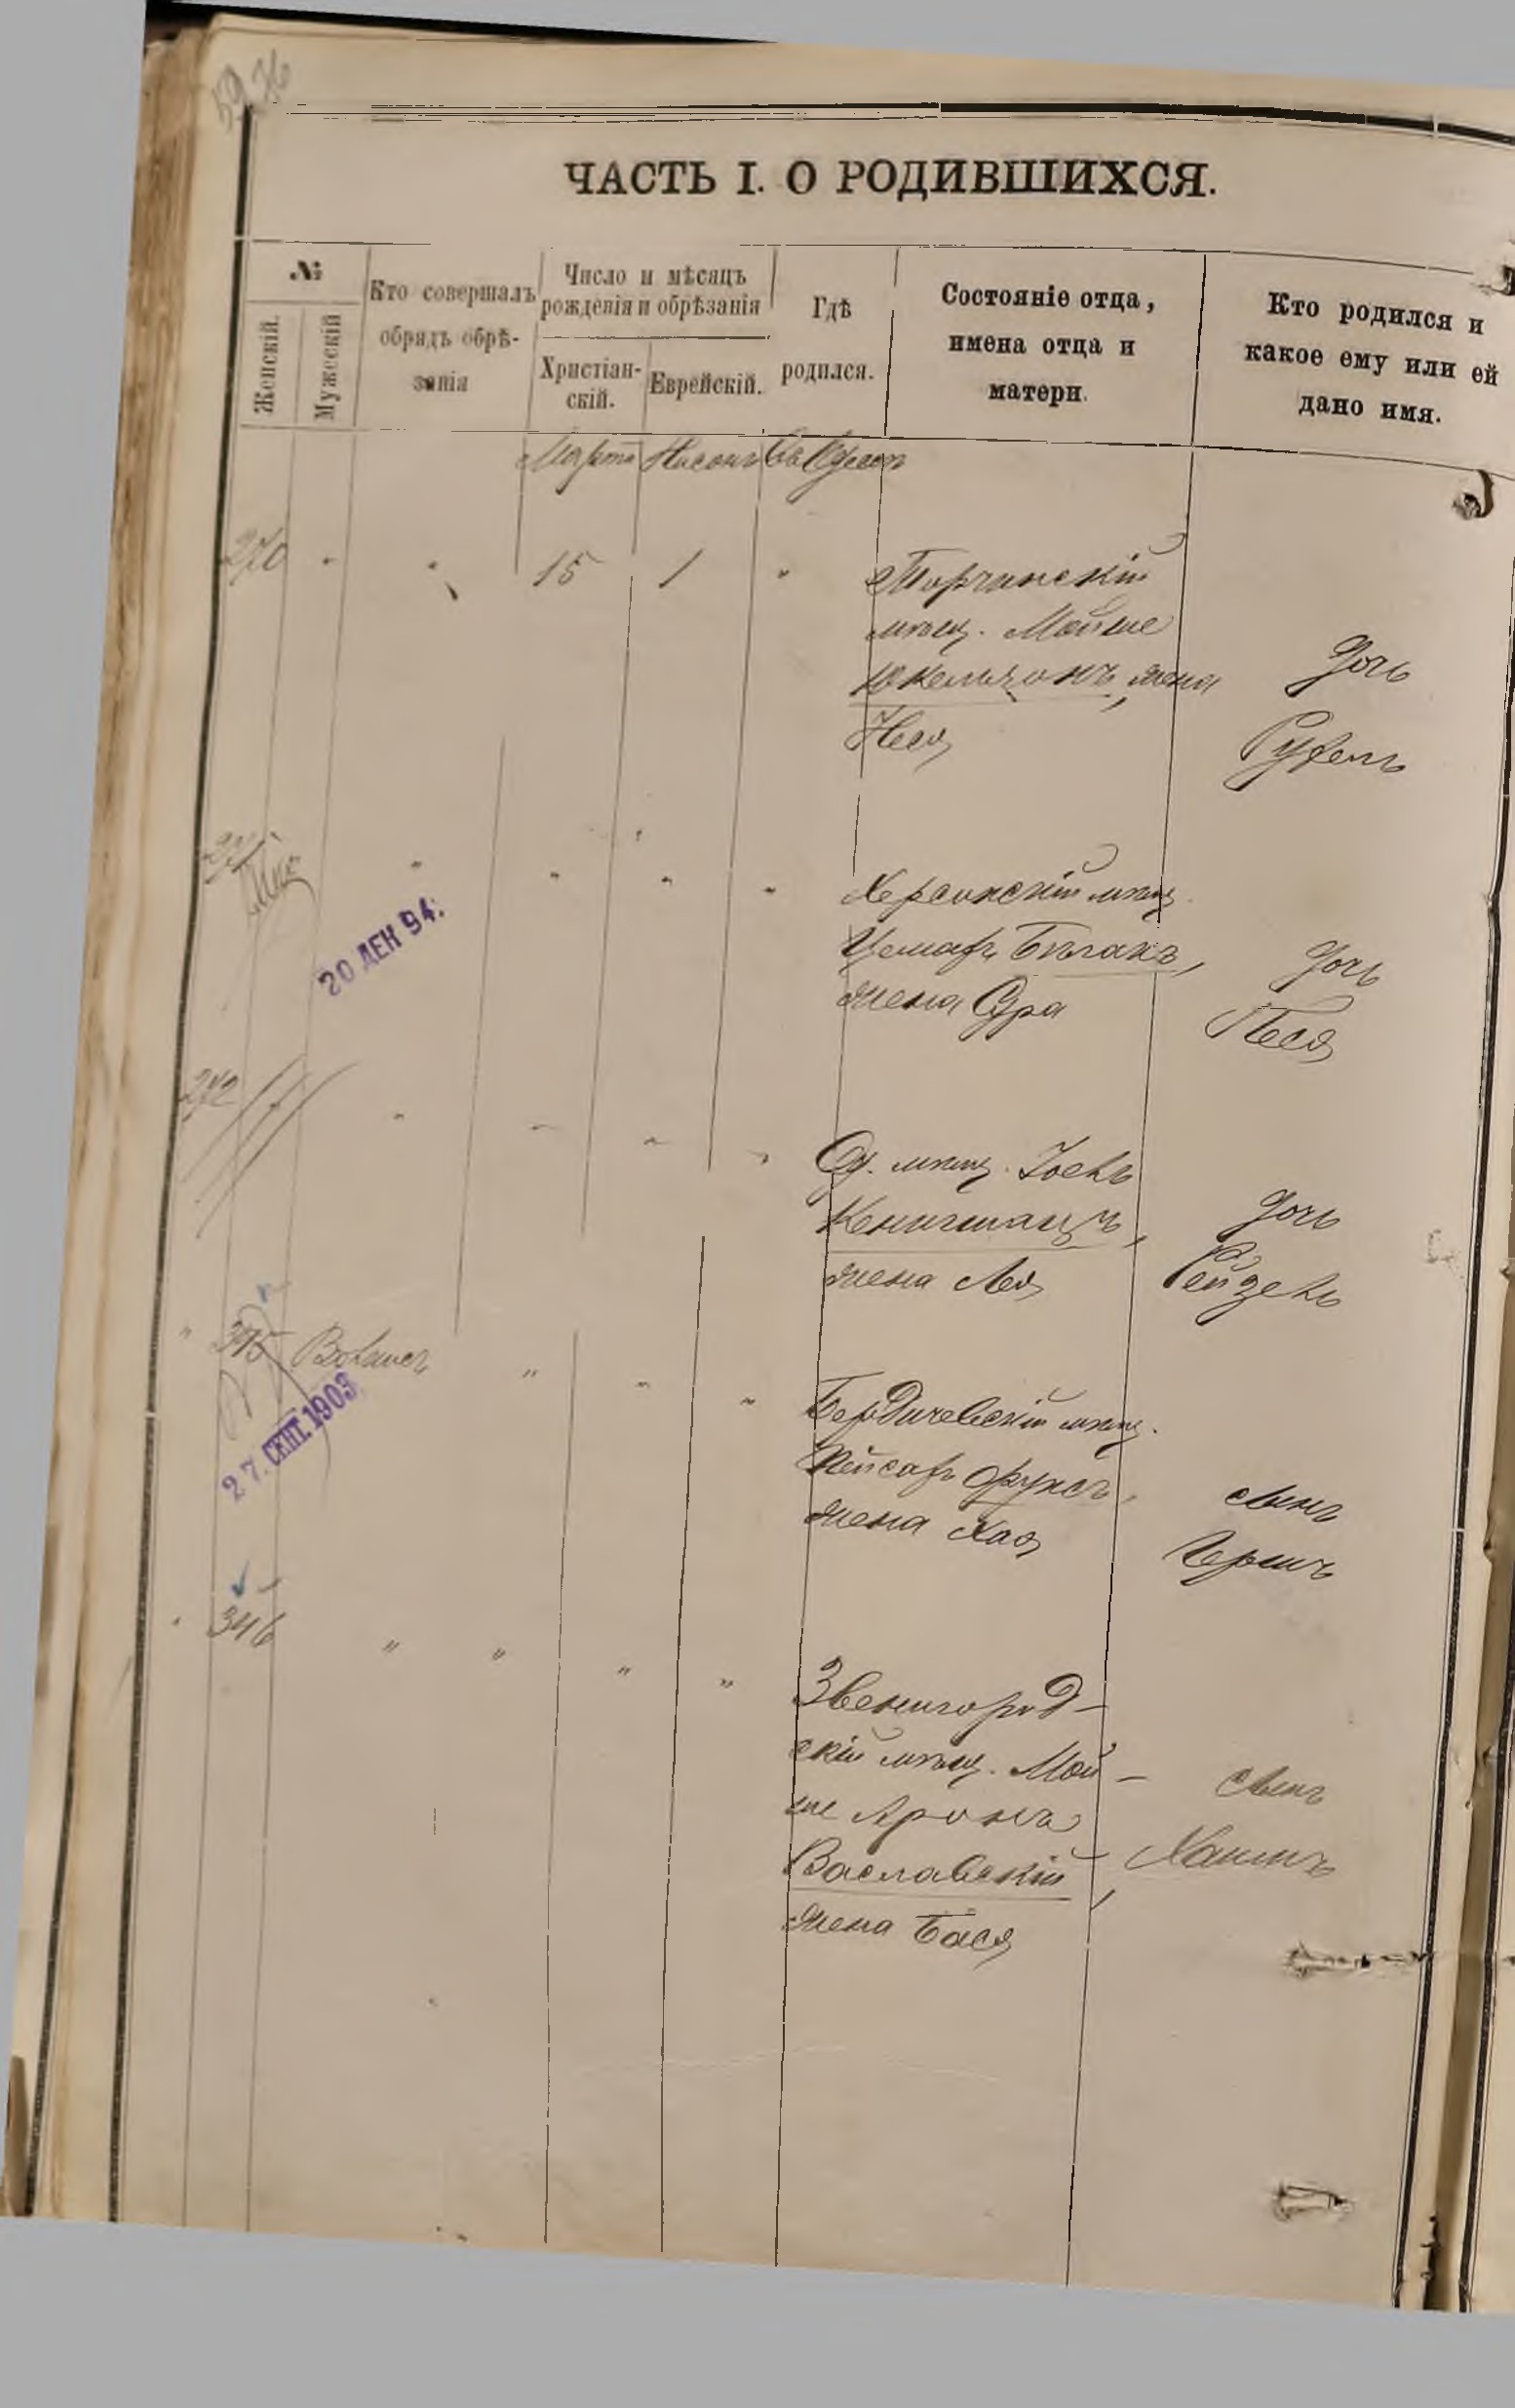 ЧАСТЬ I. О РОДИВШИХСЯ.
№
Женскій.
Мужескій
Кто совершалъ
обрядъ обрѣ-
занія
Число и мѣсяцъ
рожденія и обрѣзанія
Христіан-
скій.
Еврейскій.
Гдѣ
родился.
Состояніе отца,
имена отца и
матери.
Кто родился и
какое ему или ей
дано имя.
Марта Нисонъ Въ Одессѣ
270 " " 15 1 "
Торчинскій
мѣщ. Мойше
Юкельзонъ, жена
Неся
Дочь
Рухель
271
20 ДЕК 94.
Херсонскій мѣщ.
Цемахъ Бѣганъ,
жена Сура
Дочь
Песя
272
Од. мѣщ. Іось
Кенигшацъ,
жена Лея
Дочь
Рейзель
" 345
27. СЕНТ. 1903
Бердичевскій мѣщ.
Пейсахъ Фуксъ,
жена Хая
Сынъ
Гершъ
" 346 " " " "
Звенигород-
скій мѣщ. Мой-
ше Аронъ
Вославскій,
жена Бася
Сынъ
Хаимъ